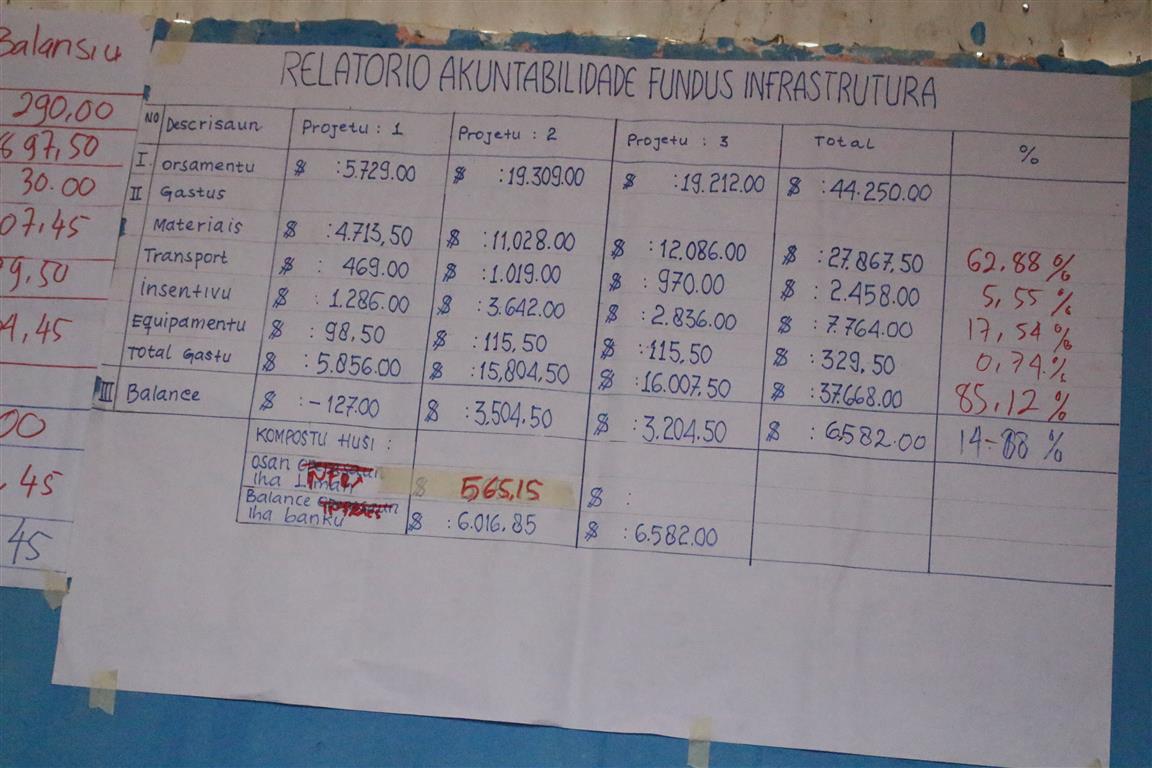 Balansiu
290,00
697,50
30.00
07,45
9,50
4,45
00
,45
45
RELATORIO AKUNTABILIDADE FUNDUS INFRASTRUTURA
NO Descrisaun Projetu : 1 Projetu : 2 Projetu : 3 Total %
I orsamentu $ :5.729.00 $ :19.309.00 $ :19.212.00 $ :44.250.00
II Gastus
Materiais $ :4.713,50 $ :11.028.00 $ :12.086.00 $ :27.867,50 62.88%
Transport $ : 469.00 $ :1.019.00 $ : 970.00 $ : 2.458.00 5,55 %
insentivu $ : 1.286.00 $ : 3.642.00 $ :2.836.00 $ : 7.764.00 17,54%
Equipamentu $ : 98,50 $ :115,50 $ :115,50 $ :329,50 0,74%
Total Gastu $ : 5.856.00 $ :15,804,50 $ :16.007,50 $ :37.668.00 85,12%
III Balance $ :-127.00 $ :3,504.50 $ :3.204.50 $ : 6.582.00 14-88 %
KOMPOSTU HUSI :
osan
iha liman $ 565,15 $ :
Balance
iha banku $ :6.016.85 $ :6.582.00